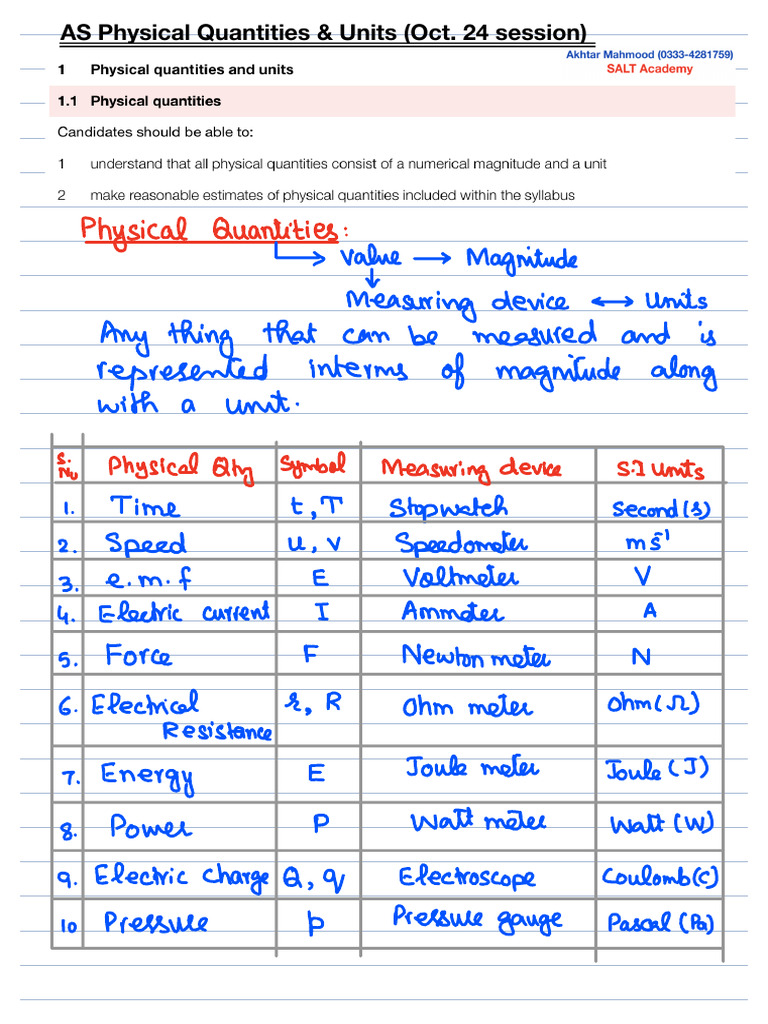 AS Physical Quantities & Units (Oct. 24 session)
Akhtar Mahmood (0333-4281759)
SALT Academy
1 Physical quantities and units
1.1 Physical quantities
Candidates should be able to:
1 understand that all physical quantities consist of a numerical magnitude and a unit
2 make reasonable estimates of physical quantities included within the syllabus
Physical Quantities:
Value → Magnitude
Measuring device ↔ Units
Any thing that can be measured and is
represented interms of magnitude along
with a unit.
S. No Physical Qty Symbol Measuring device S.I Units
1. Time t, T Stopwatch Second (s)
2. Speed u, v Speedometer ms⁻¹
3. e.m.f E Voltmeter V
4. Electric current I Ammeter A
5. Force F Newton meter N
6. Electrical Resistance r, R Ohm meter Ohm (Ω)
7. Energy E Joule meter Joule (J)
8. Power P Watt meter Watt (W)
9. Electric charge Q, q Electroscope Coulomb (C)
10 Pressure p Pressure gauge Pascal (Pa)